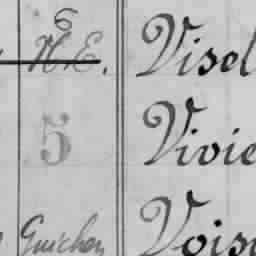 6
N.E. Visel
5 Vivie
Guichen Vois